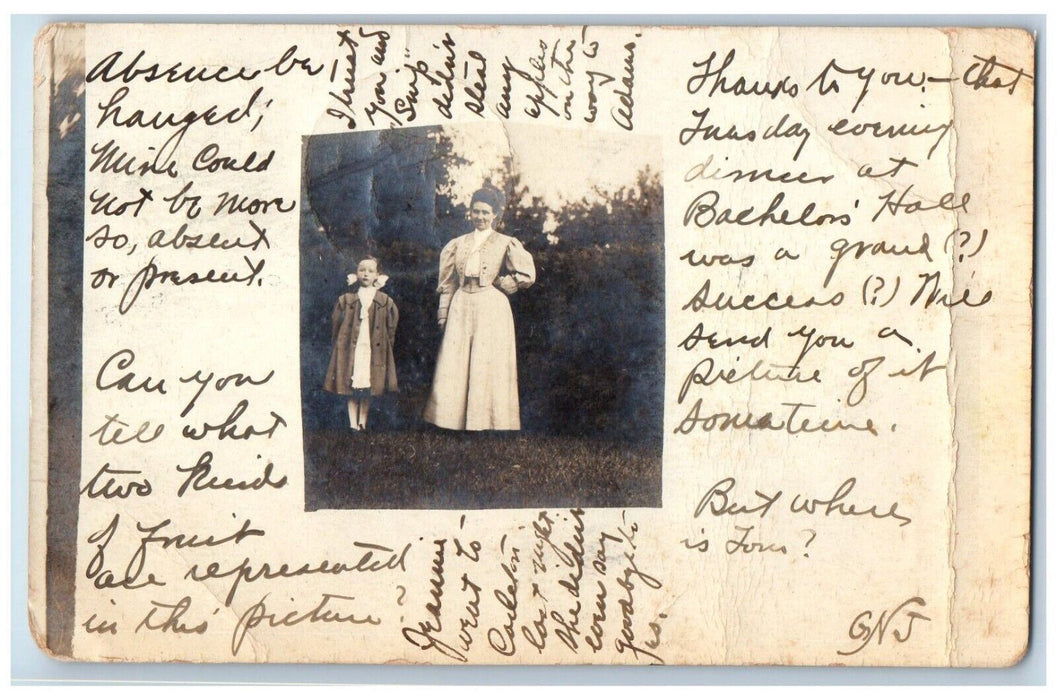 Absence be
hanged;
Mine could
not be more
so, absent
or present.
Can you
tell what
two kinds
of fruit
are represented
in this picture?
I trust
you and
"Snip"
didn't
steal
any
apples
on the
way to
Adams.
Jeannie
went to
Carleton
last night.
She didn't
even say
goodby to
us.
Thanks to you - that
Tuesday evening
dinner at
Bachelors' Hall
was a grand (?)
success (?) We'll
send you a
picture of it
sometime.
But where
is Tom?
GNJ